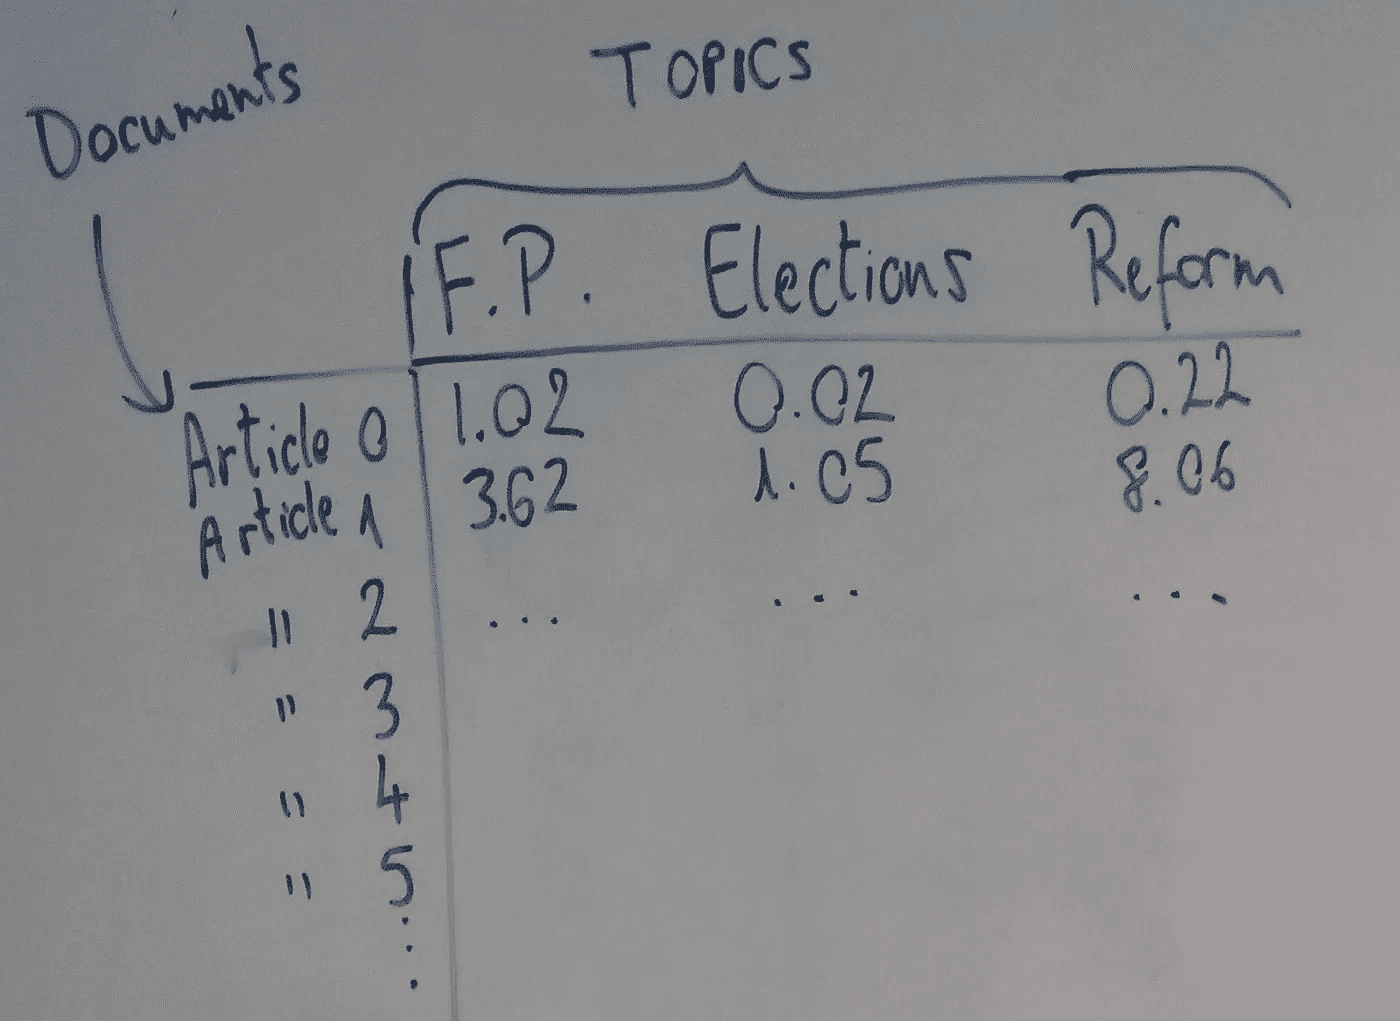 Documents
TOPICS
F.P. Elections Reform
Article 0 1.02 0.02 0.22
Article 1 3.62 1.05 8.06
" 2 ... ... ...
" 3
" 4
" 5
⋮